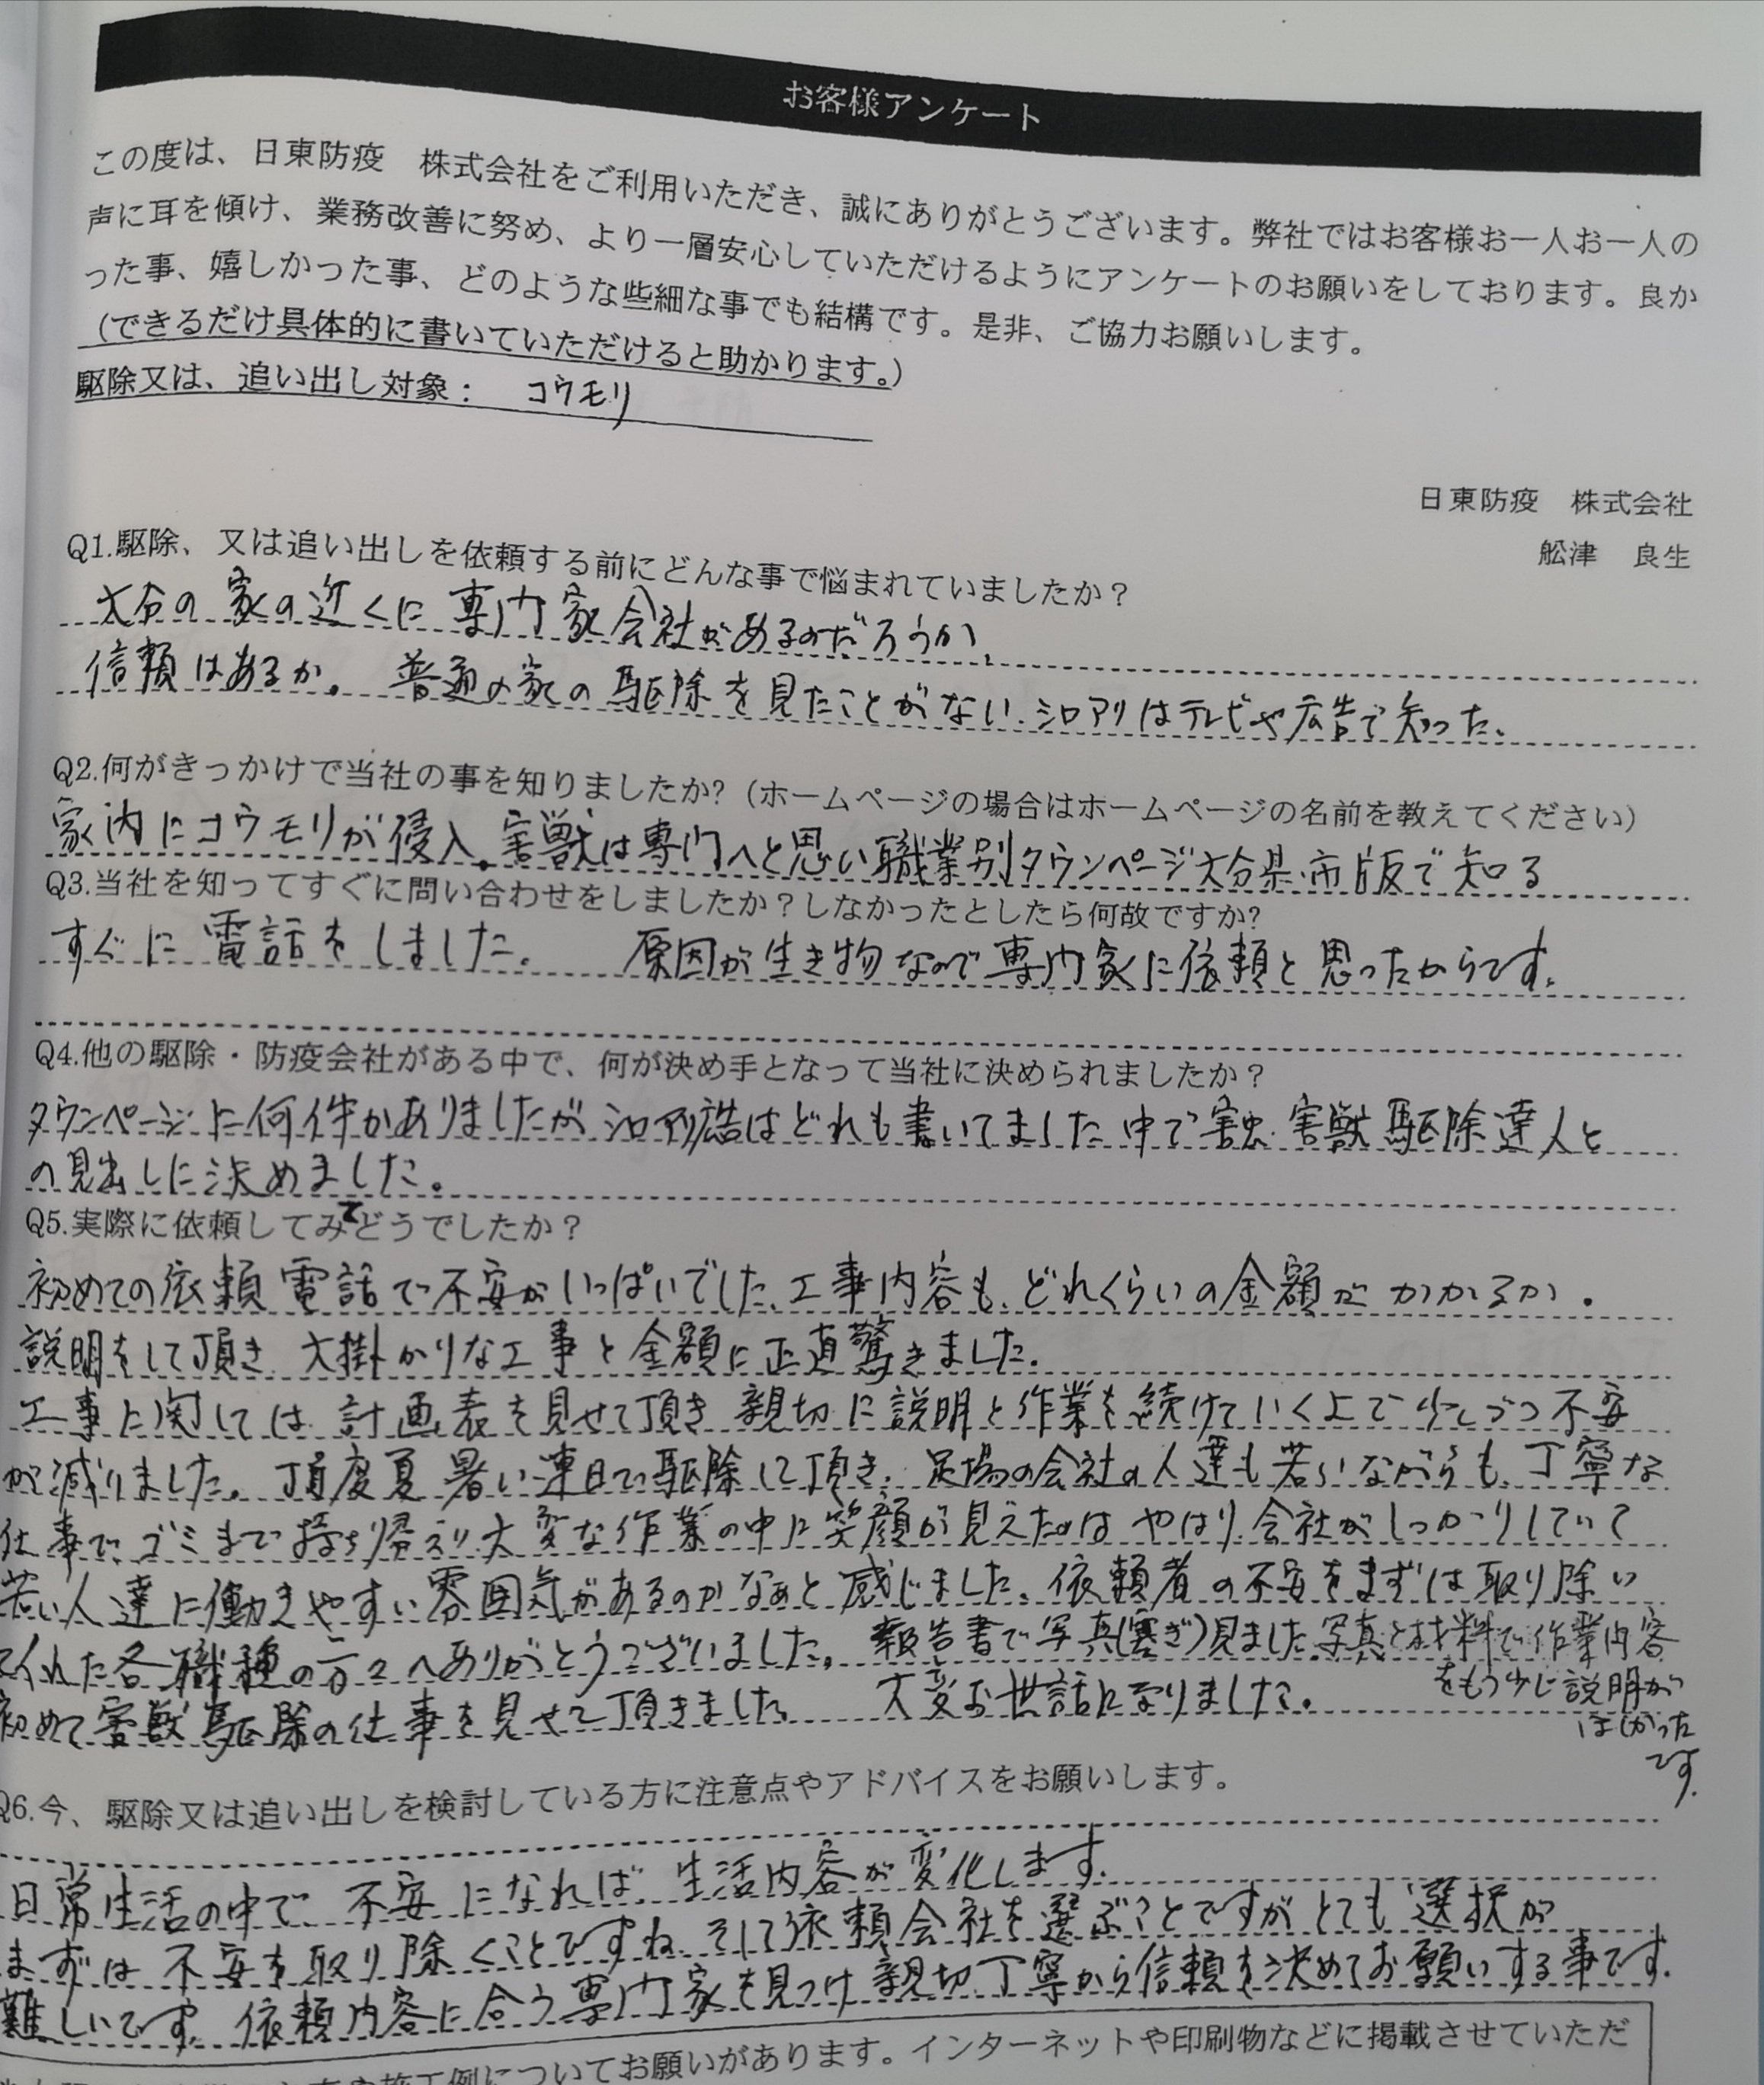 お客様アンケート
この度は、日東防疫　株式会社をご利用いただき、誠にありがとうございます。弊社ではお客様お一人お一人の
声に耳を傾け、業務改善に努め、より一層安心していただけるようにアンケートのお願いをしております。良か
った事、嬉しかった事、どのような些細な事でも結構です。是非、ご協力お願いします。
（できるだけ具体的に書いていただけると助かります。）
駆除又は、追い出し対象：　コウモリ
日東防疫　株式会社
舩津　良生
Q1.駆除、又は追い出しを依頼する前にどんな事で悩まれていましたか？
大分の家の近くに専門家会社があるのだろうか、
信頼はあるか。普通の家の駆除を見たことがない、シロアリはテレビや広告で知った、
Q2.何がきっかけで当社の事を知りましたか?（ホームページの場合はホームページの名前を教えてください）
家内にコウモリが侵入、害獣は専門へと思い職業別タウンページ大分県・市版で知る
Q3.当社を知ってすぐに問い合わせをしましたか？しなかったとしたら何故ですか?
すぐに電話をしました。　原因が生き物なので専門家に依頼と思ったからです。
Q4.他の駆除・防疫会社がある中で、何が決め手となって当社に決められましたか？
タウンページに何件かありましたがシロアリ広告はどれも書いてました中で害虫、害獣駆除達人と
の見出しに決めました。
Q5.実際に依頼してみてどうでしたか？
初めての依頼電話で不安がいっぱいでした、工事内容も、どれくらいの金額がかかるか。
説明をして頂き、大掛かりな工事と金額に正直驚きました。
工事に関しては計画表を見せて頂き親切に説明と作業を続けていく上で少しづつ不安
が減りました。丁度夏暑い連日で駆除して頂き、足場の会社の人達も若いながらも、丁寧な
仕事で、ゴミまで持ち帰えり、大変な作業の中に笑顔が見えたのは やはり、会社がしっかりしていて
若い人達に働きやすい雰囲気があるのかなぁと感じました、依頼者の不安をまずは取り除い
てくれた各職種の方々へありがとうございました。報告書で写真(塞ぎ)見ました、写真と材料で作業内容
をもう少し説明が
ほしかった
です。
初めて害獣駆除の仕事を見せて頂きました、　大変お世話になりました。
Q6.今、駆除又は追い出しを検討している方に注意点やアドバイスをお願いします。
日常生活の中で、不安になれば、生活内容が変化します。
まずは不安を取り除くことですね、そして依頼会社を選ぶことですがとても選択が
難しいです。依頼内容に合う専門家を見つけ親切丁寧から信頼を決めてお願いする事です。
についてお願いがあります。インターネットや印刷物などに掲載させていただ